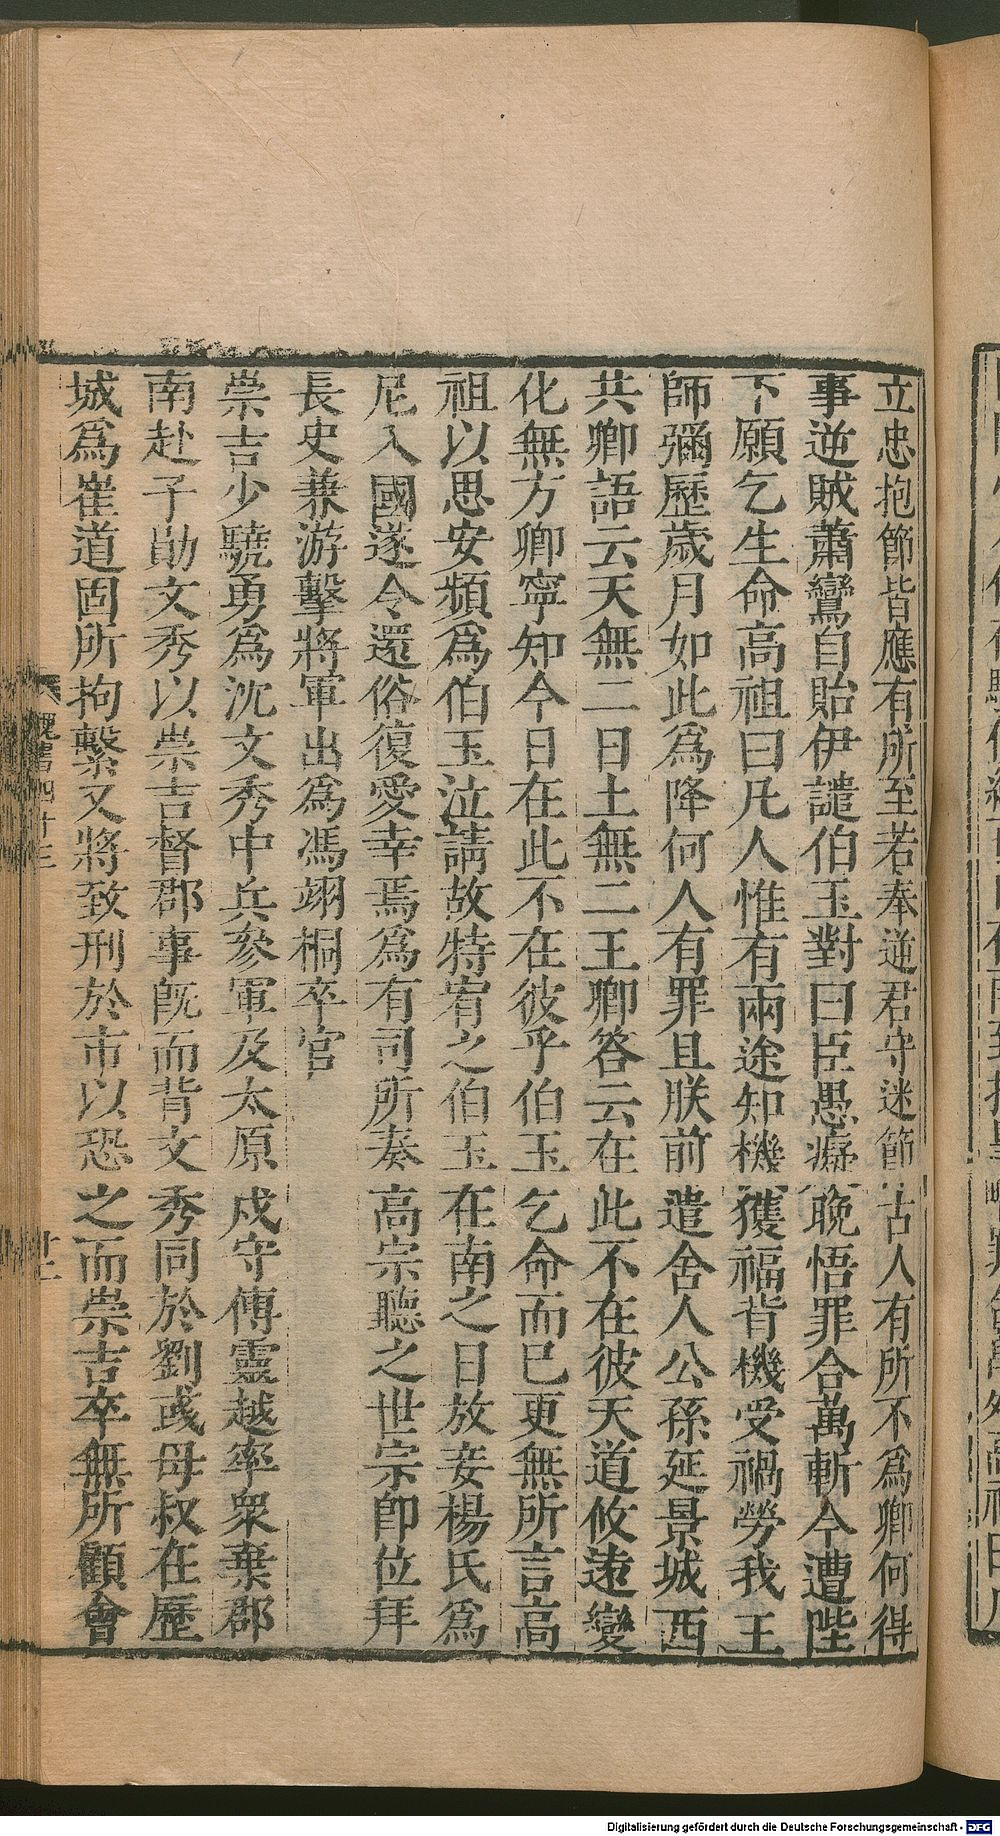 立忠抱節皆應有所至若奉逆君守迷節古人有所不爲卿何得
事逆賊蕭鸞自貽伊譴伯玉對曰臣愚癡晩悟罪合萬斬今遭陛
下願乞生命高祖曰凡人惟有兩途知機獲福背機受禍勞我王
師彌歷歲月如此爲降何人有罪且朕前遣舍人公孫延景城西
共卿語云天無二日土無二王卿答云在此不在彼天道攸遠變
化無方卿寧知今日在此不在彼乎伯玉乞命而已更無所言高
祖以思安頻爲伯玉泣請故特宥之伯玉在南之日放妾楊氏爲
尼入國遂令還俗復愛幸焉爲有司所奏高宗聽之世宗卽位拜
長史兼游擊將軍出爲馮翊相卒官
崇吉少驍勇爲沈文秀中兵參軍及太原戍守傅靈越率衆棄郡
南赴子勛文秀以崇吉督郡事旣而背文秀同於劉彧母叔在歷
城爲崔道固所拘繫又將致刑於市以恐之而崇吉卒無所顧會
魏書四十三
Digitalisierung gefördert durch die Deutsche Forschungsgemeinschaft - DFG